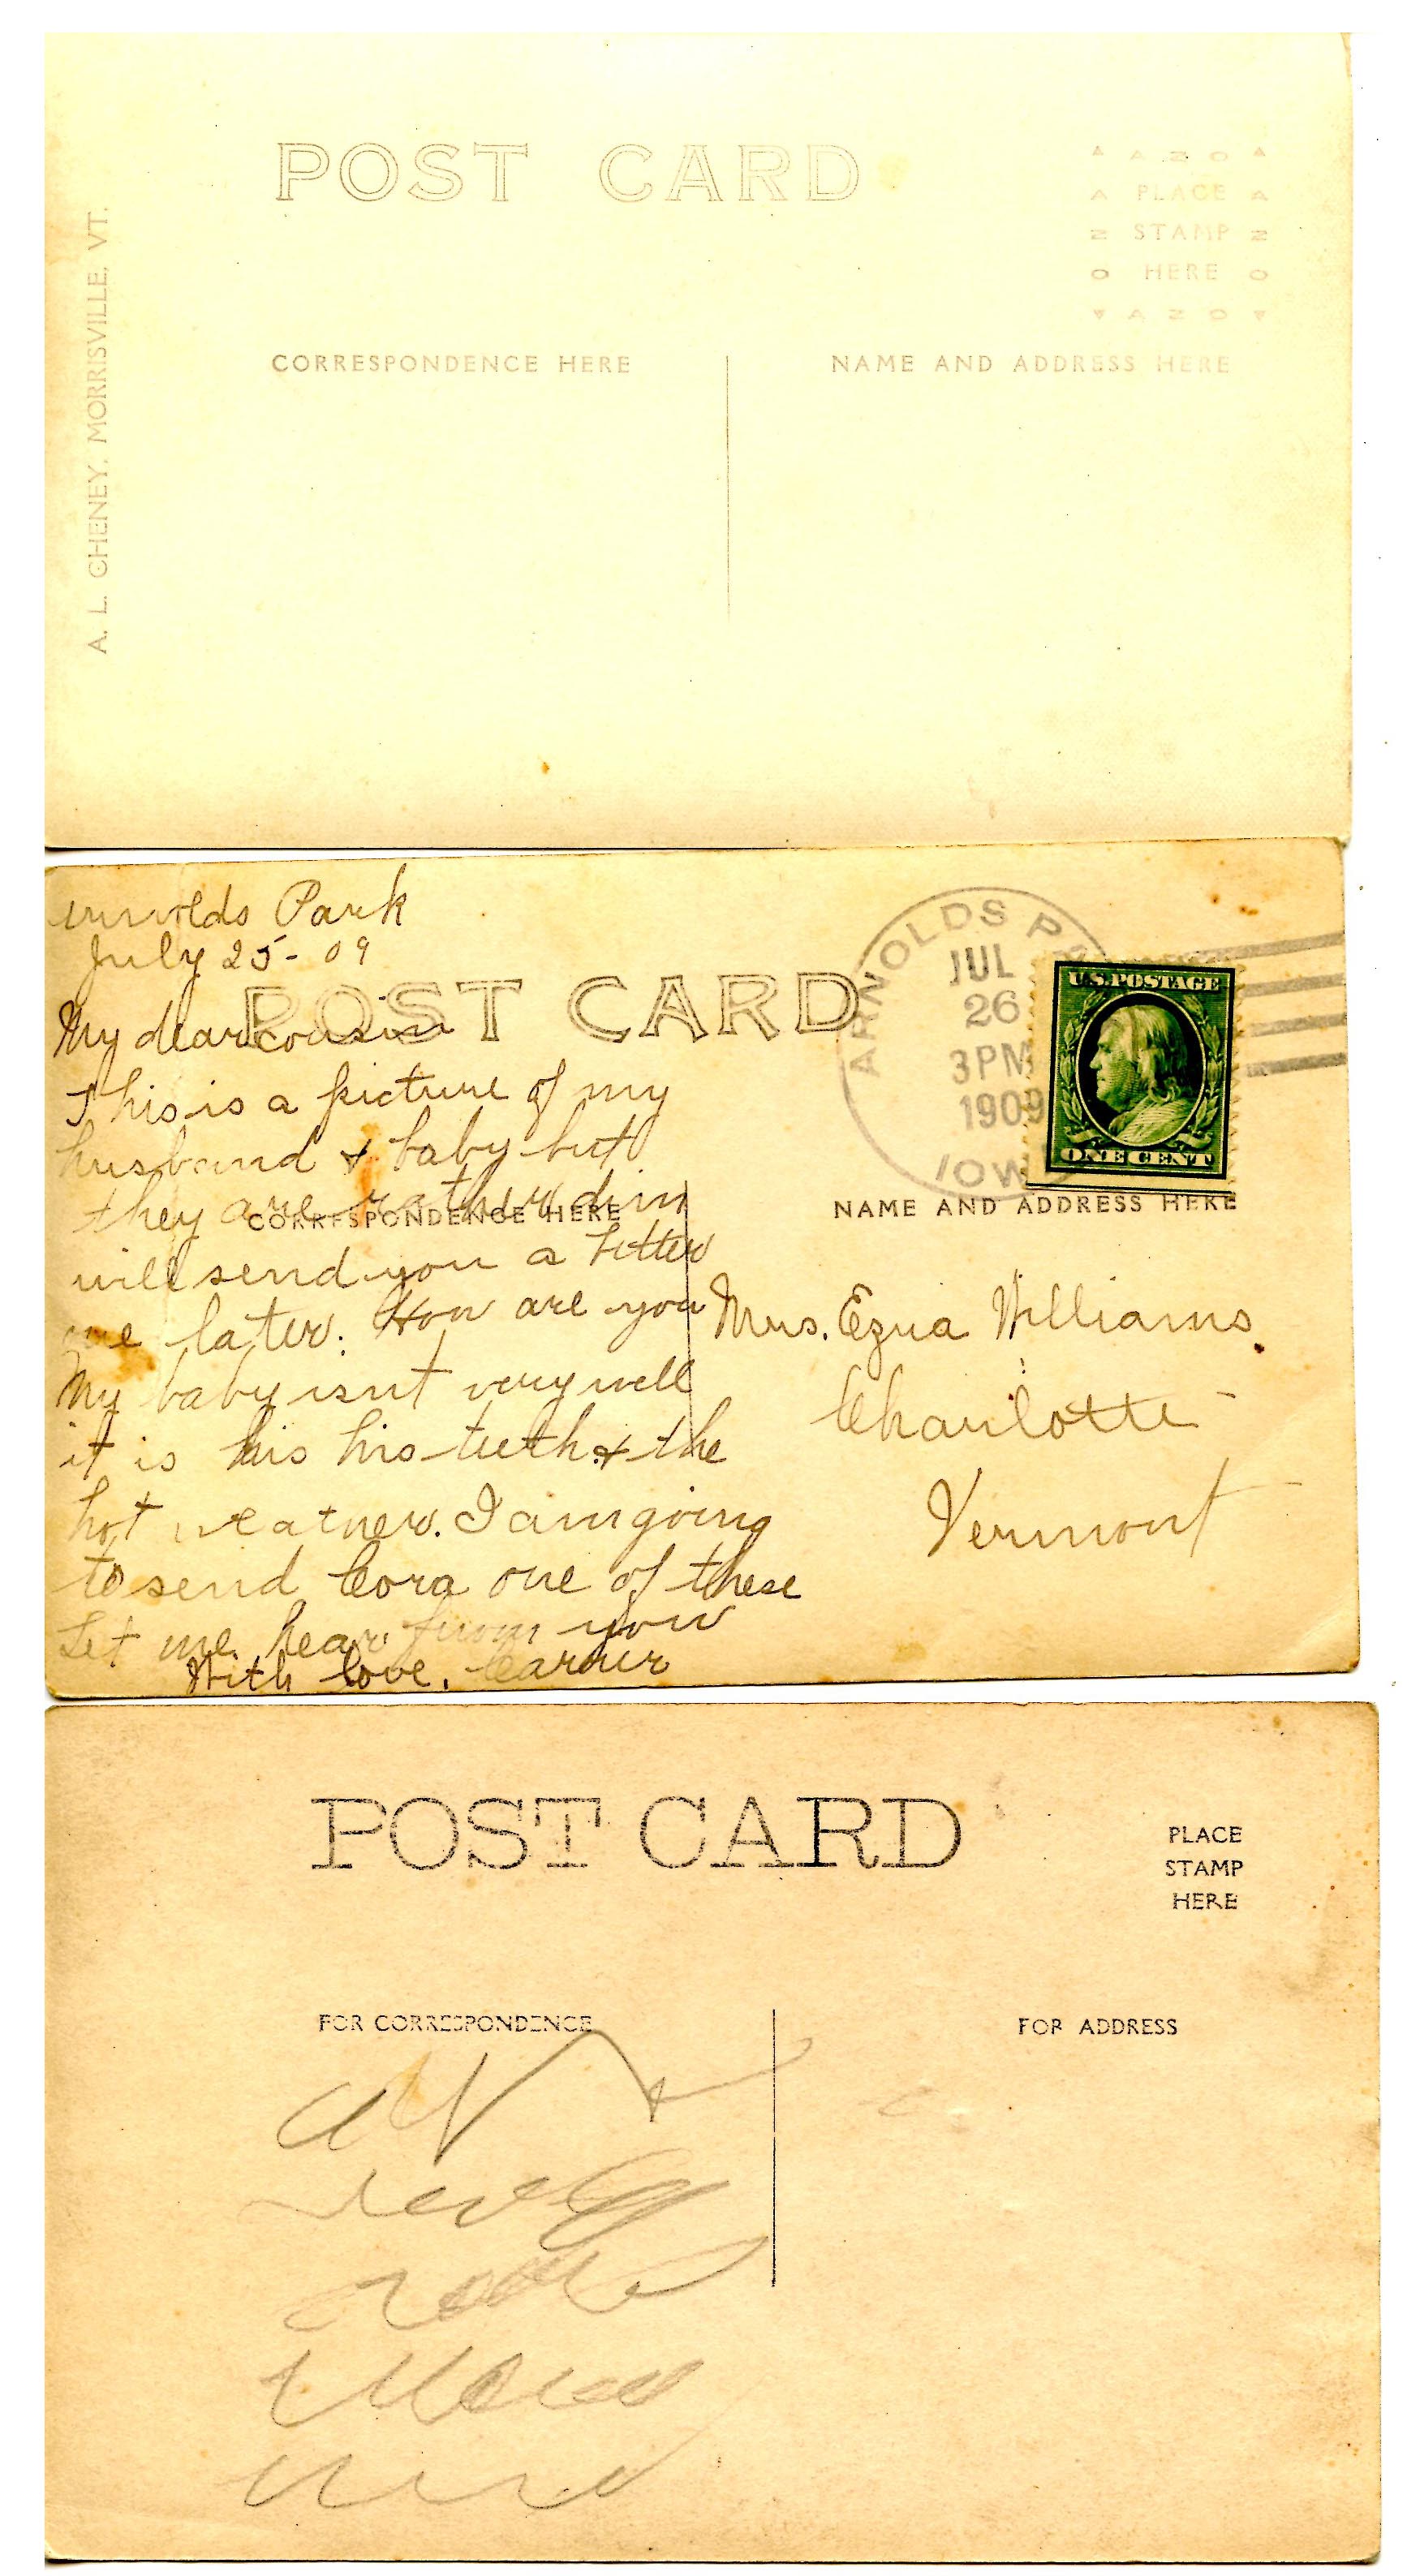 POST CARD
A Z O
PLACE
STAMP
HERE
A Z O
CORRESPONDENCE HERE
NAME AND ADDRESS HERE
A. L. CHENEY, MORRISVILLE, VT.
Park
July 25 - 09
POST CARD
My dear cousin
This is a picture of my
husband & baby but
they are rather dim
CORRESPONDENCE HERE
will send you a better
one later. How are you
My baby isnt very well
it is his his teeth & the
hot weather. I am going
to send Cora one of these
Let me hear from you
With love,
ARNOLDS P
JUL
26
3 PM
1909
IOW
U.S. POSTAGE
ONE CENT
NAME AND ADDRESS HERE
Mrs. Ezria Williams.
Charlotte
Vermont
POST CARD
PLACE
STAMP
HERE
FOR CORRESPONDENCE
FOR ADDRESS